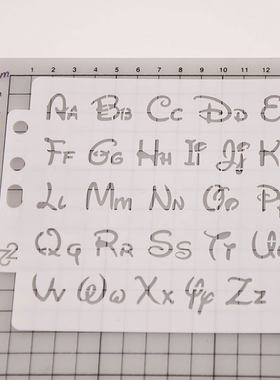 1 2 3 4 5 6 7 8 9 10 11 12
Aa Bb Cc Dd E
Ff Gg Hh Ii Jj K
Ll Mm Nn Oo P
Qq Rr Ss Tt U
Vv Ww Xx Yy Zz